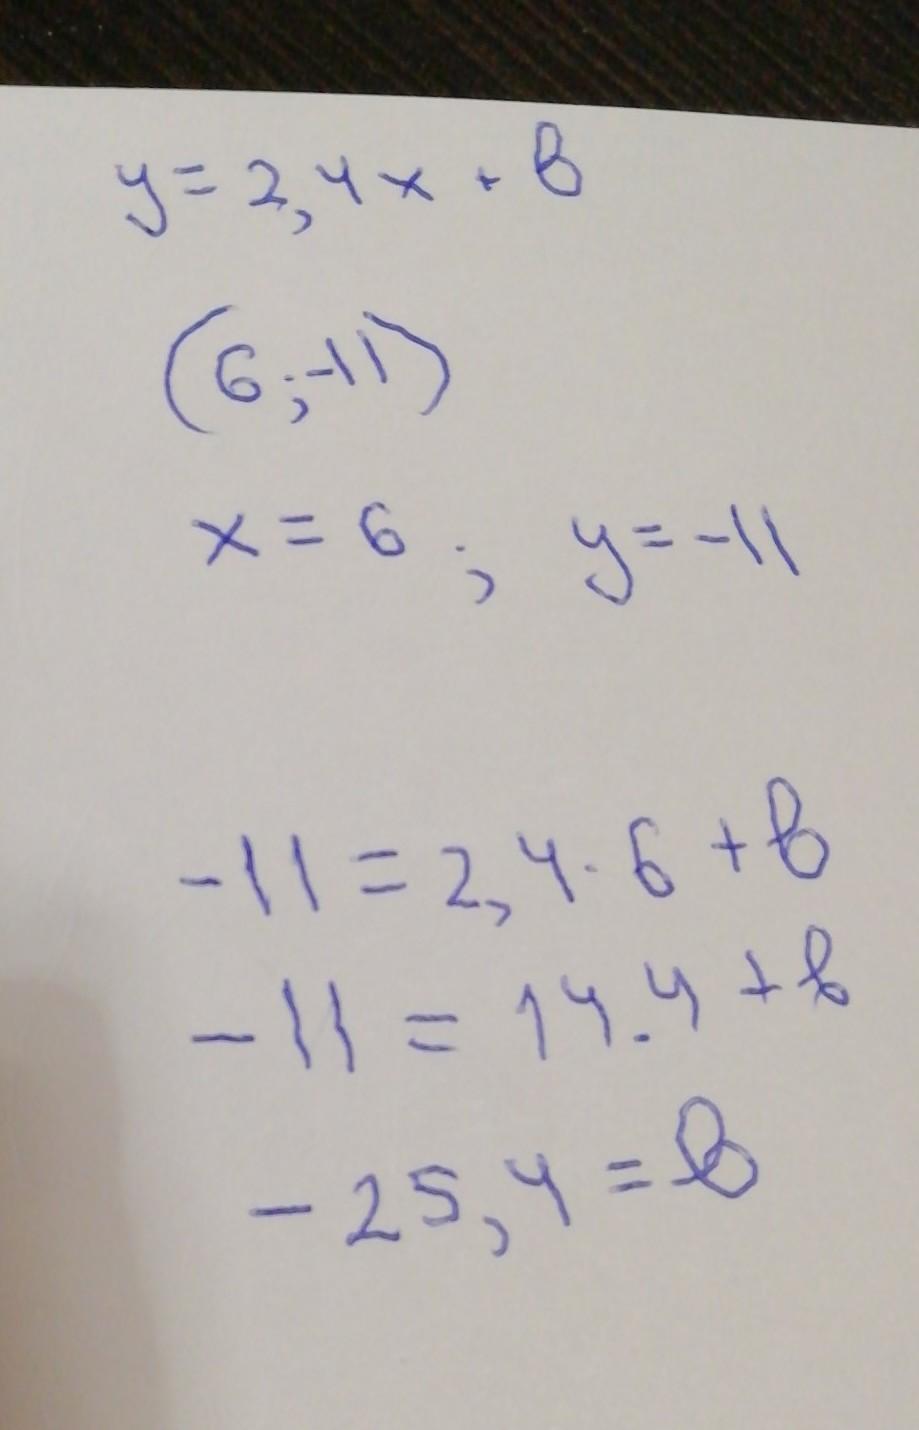 y = 2,4x + b
(6;-11)
x = 6 ; y = -11
-11 = 2,4·6 + b
-11 = 14.4 + b
-25,4 = b